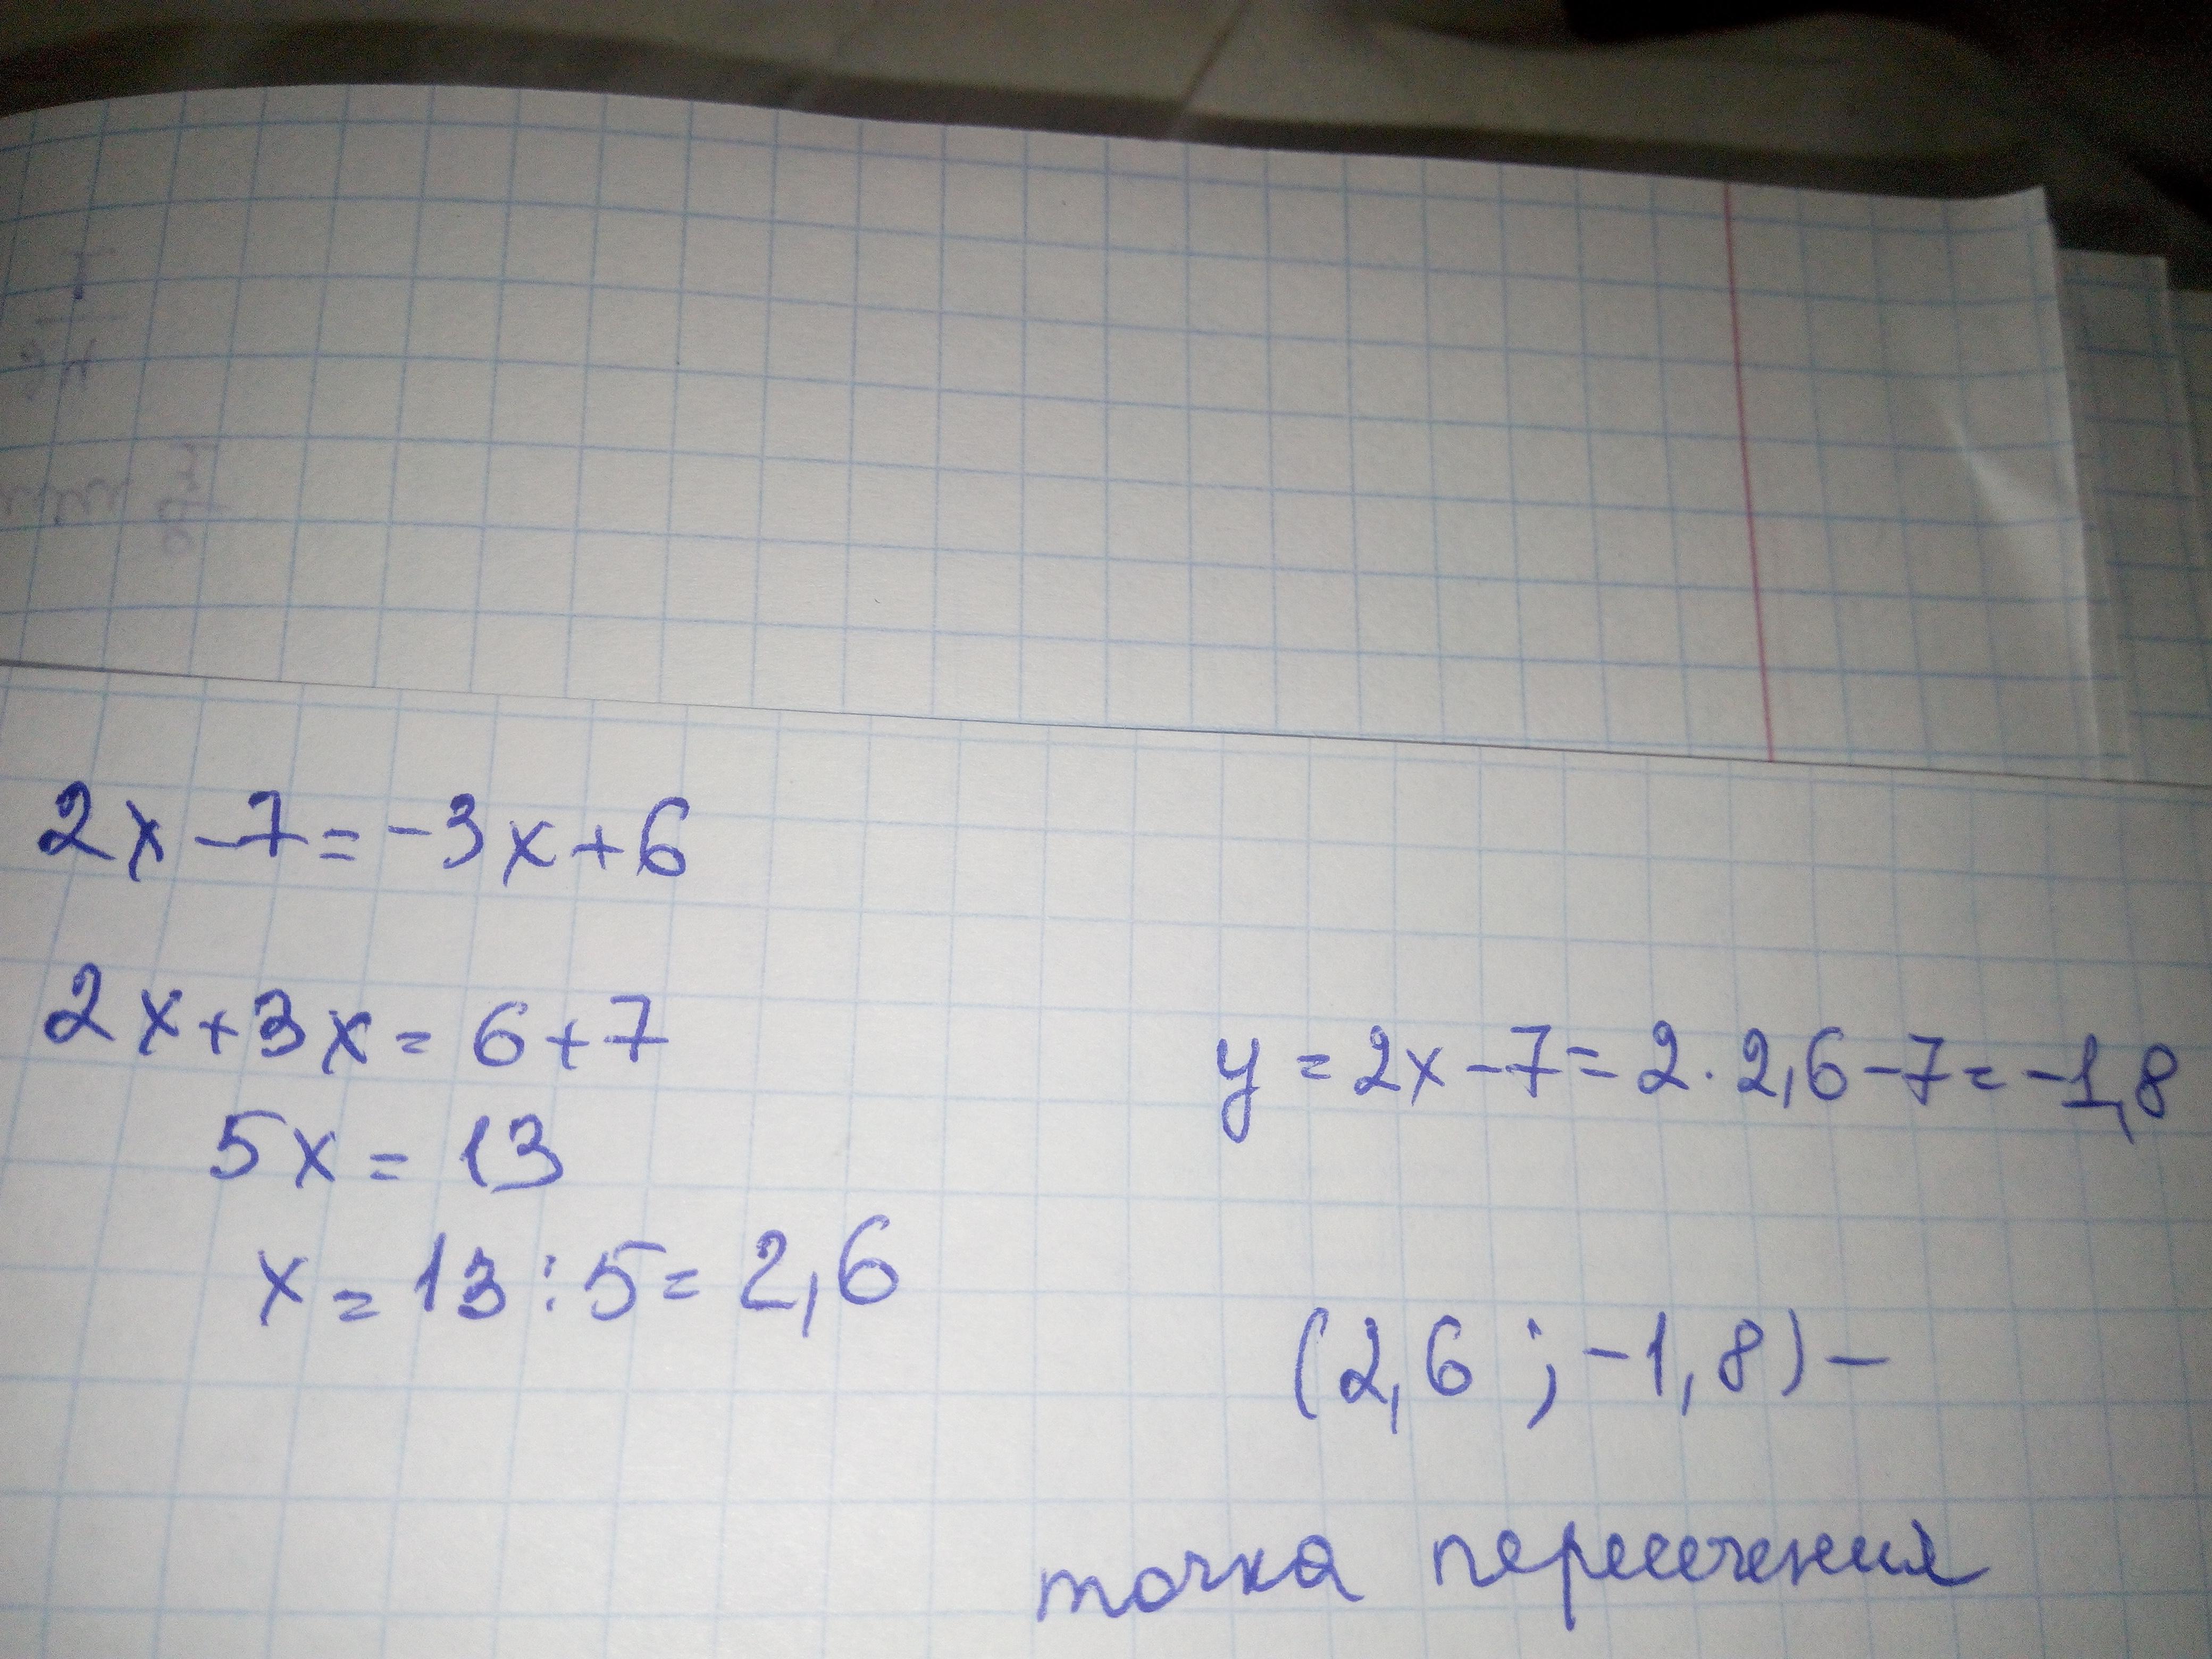 2x-7=-3x+6
2x+3x=6+7
5x=13
x=13:5=2,6
y=2x-7=2·2,6-7=-1,8
(2,6;-1,8)-
точка пересечения